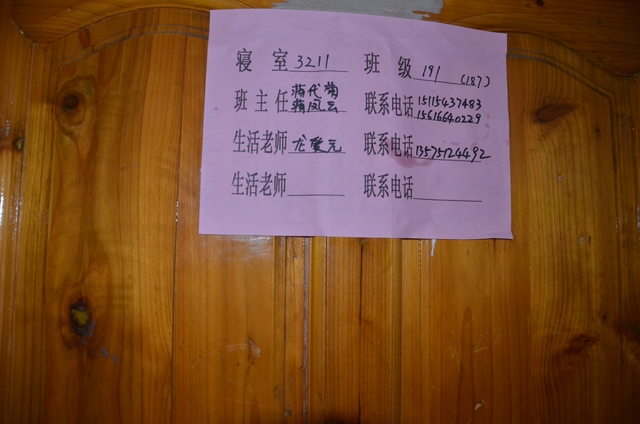 寝室3211 班级191(187)
班主任蒋代菊 联系电话15115437483
蒋凤云 15616640229
生活老师龙爱元 联系电话13575124492
生活老师 联系电话